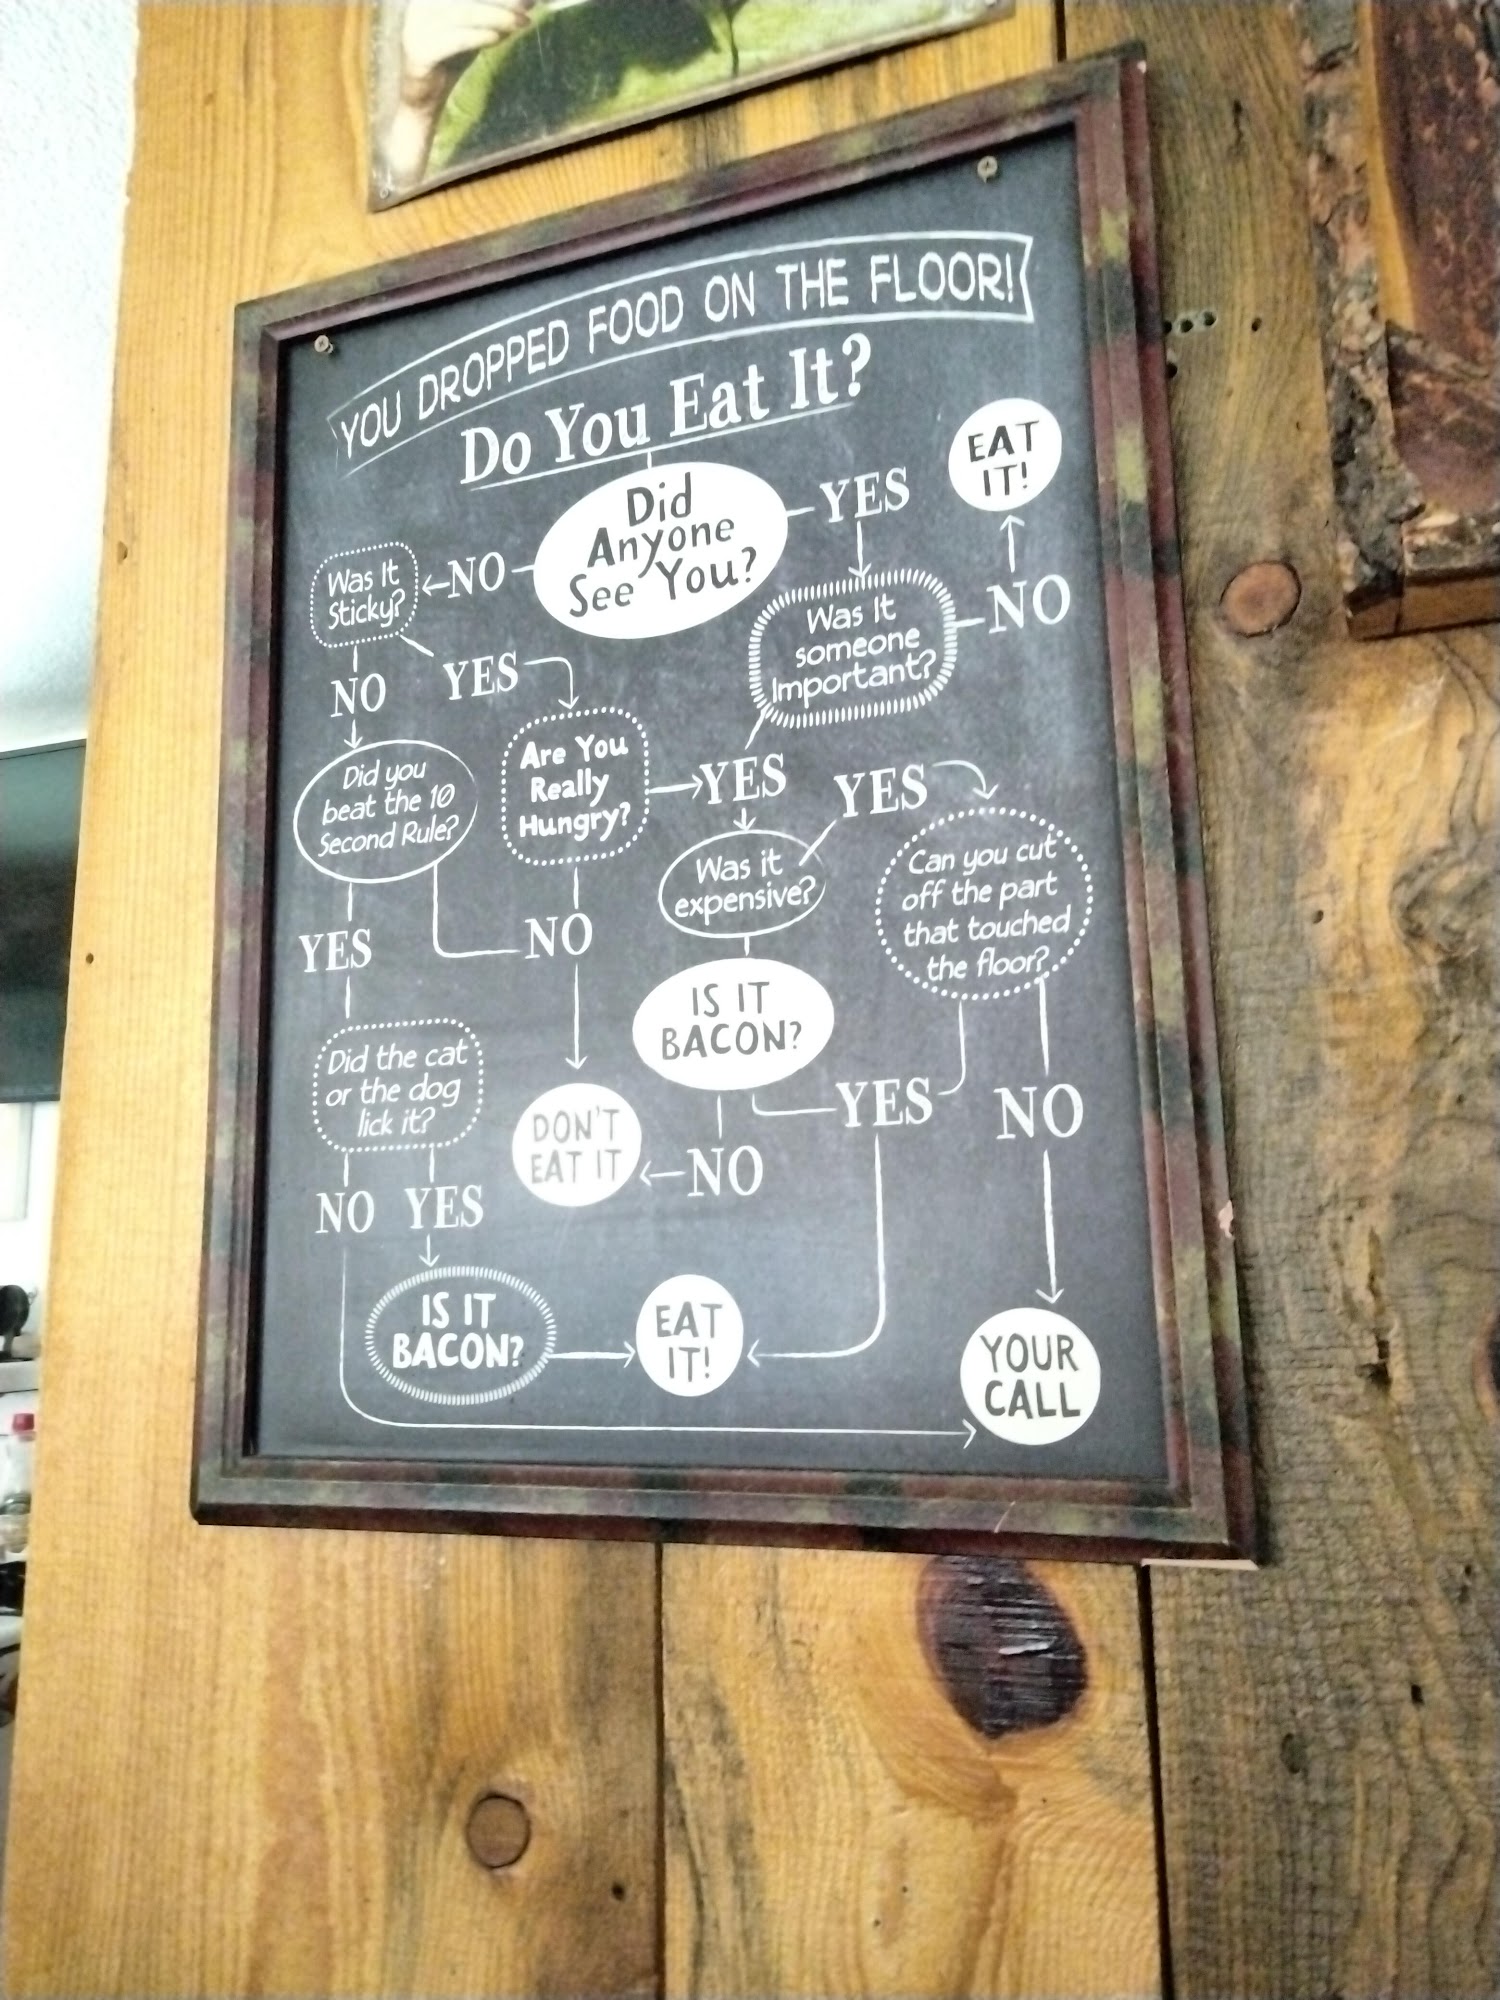 YOU DROPPED FOOD ON THE FLOOR!
Do You Eat It?
Did
Anyone
See You?
YES
EAT
IT!
NO
Was It
Sticky?
Was It
someone
Important?
NO
NO
YES
Are You
Really
Hungry?
YES
YES
Did you
beat the 10
Second Rule?
Was it
expensive?
Can you cut
off the part
that touched
the floor?
YES
NO
IS IT
BACON?
Did the cat
or the dog
lick it?
DON'T
EAT IT
NO
YES
NO
NO
YES
IS IT
BACON?
EAT
IT!
YOUR
CALL